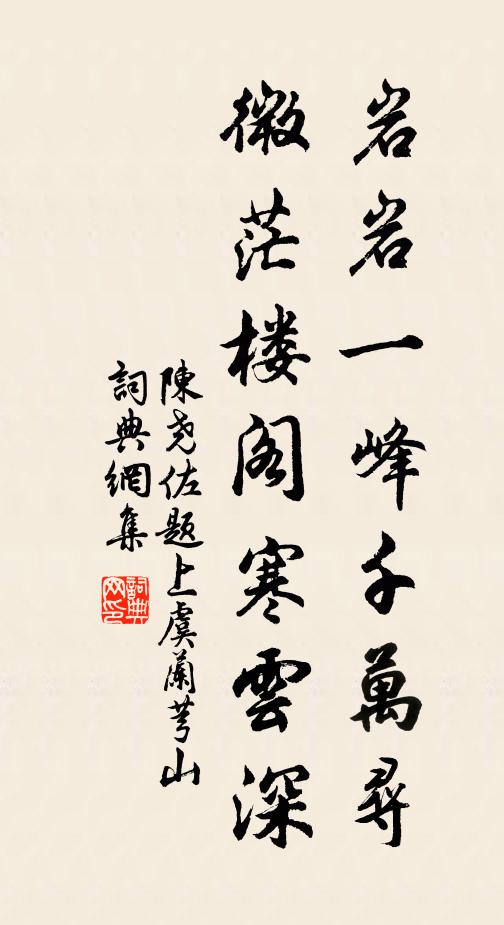 岩岩一峰千萬尋
微茫楼阁寒雲深
陳尧佐题上虞蘭芎山
詞典網集
詞典网印